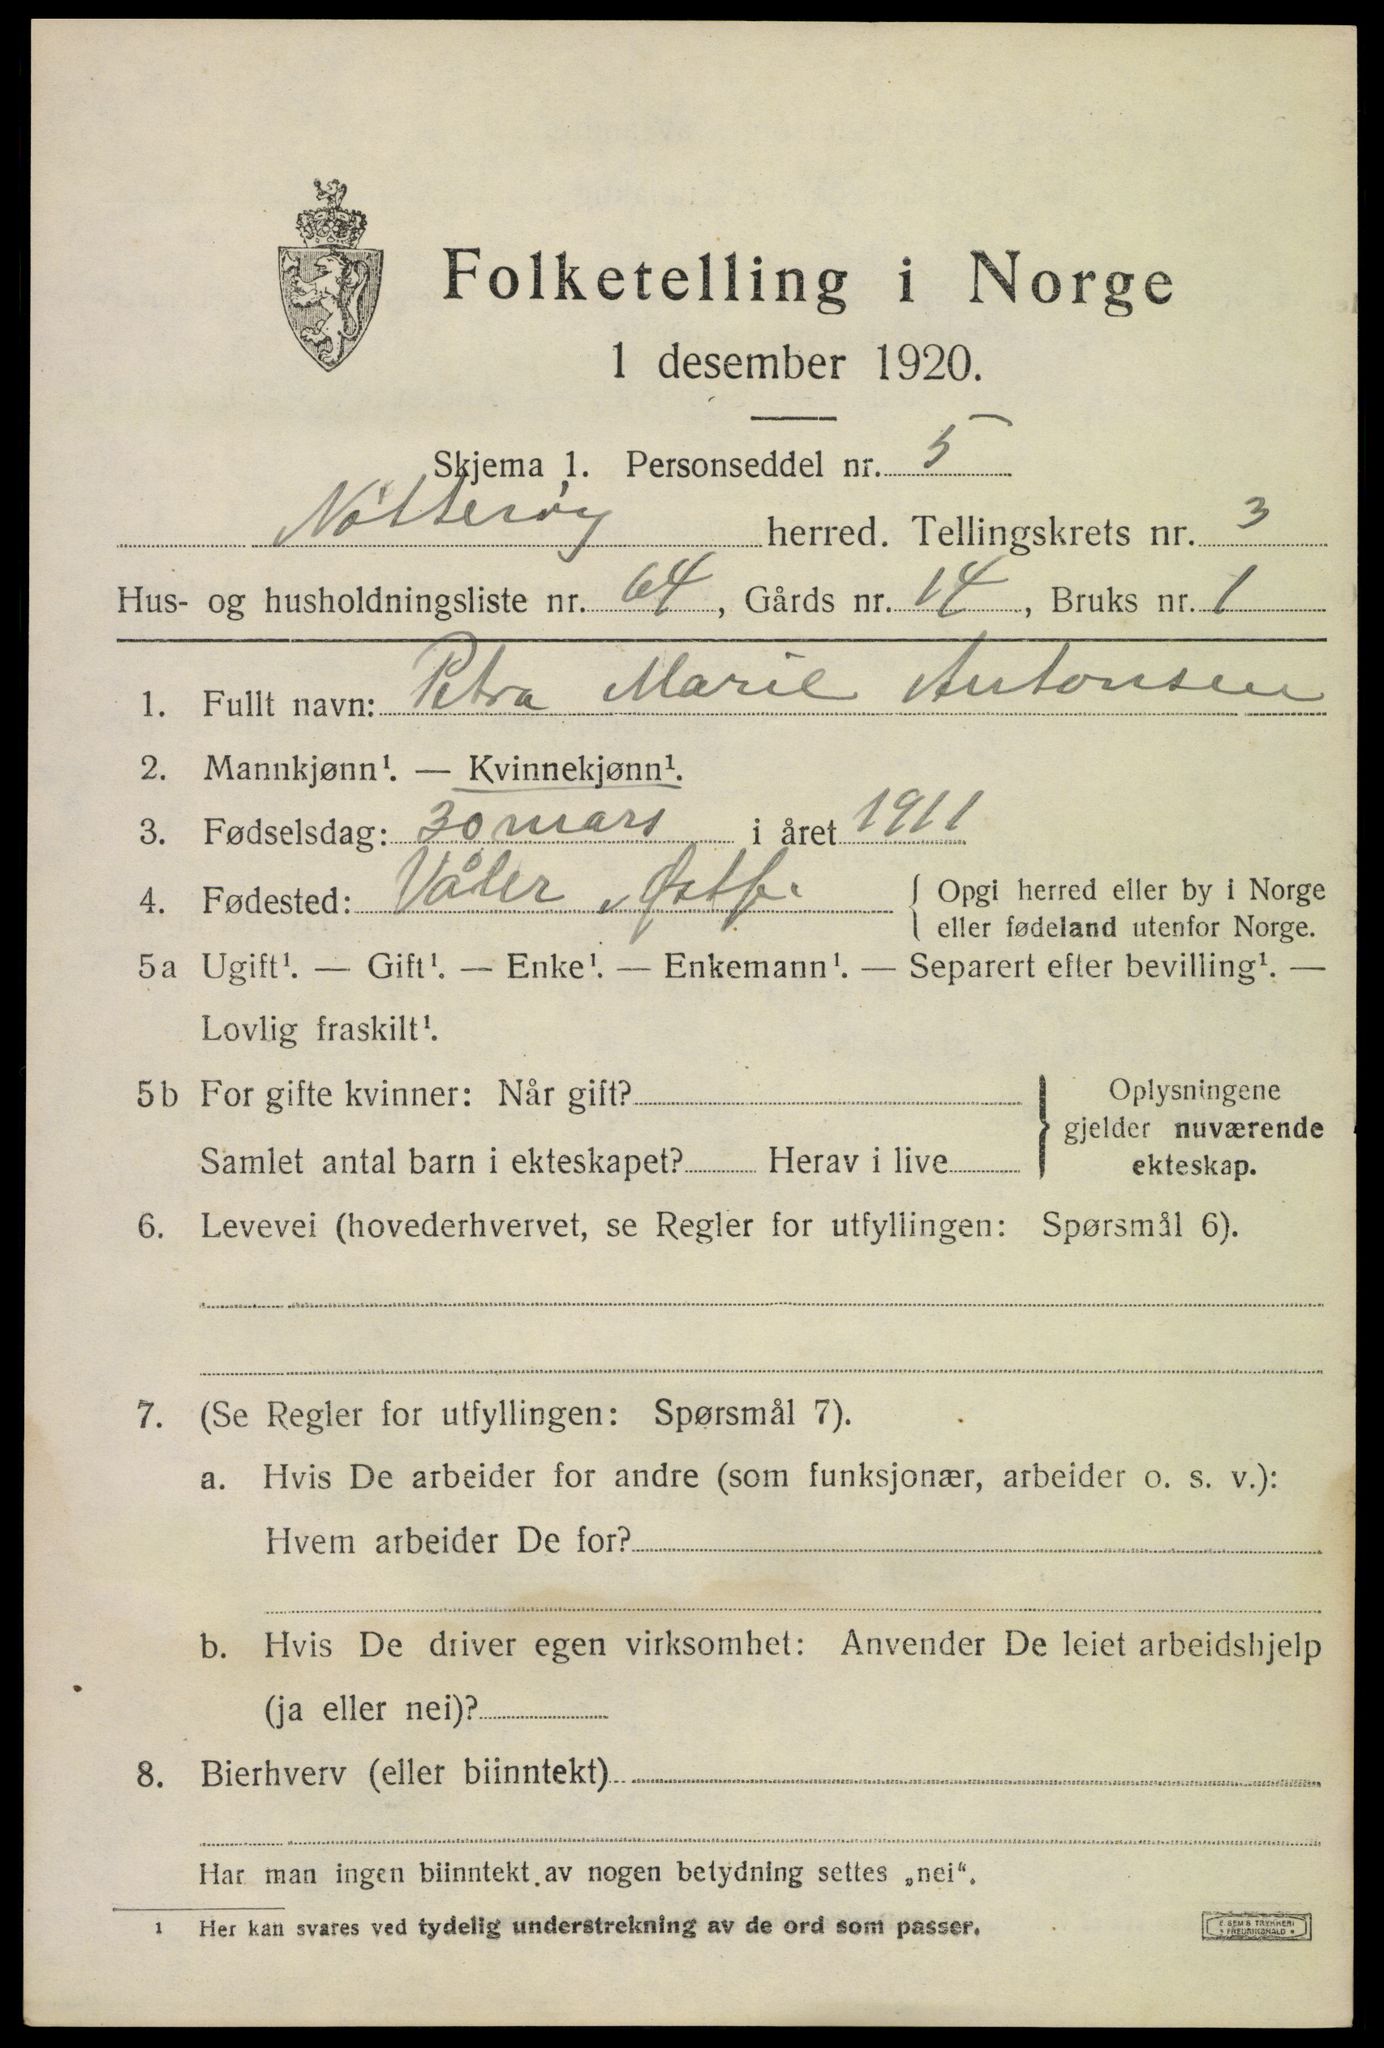 Folketelling i Norge
1 desember 1920.
Skjema 1. Personseddel nr. 5
Nøtterøy herred. Tellingskrets nr. 3
Hus- og husholdningsliste nr. 64, Gårds nr. 14, Bruks nr. 1
1. Fullt navn: Petra Marie Antonsen
2. Mannkjønn¹. — Kvinnekjønn¹.
3. Fødselsdag: 30 mars i året 1911
4. Fødested: Våler, Østf. { Opgi herred eller by i Norge
eller fødeland utenfor Norge.
5a Ugift¹. — Gift¹. — Enke¹. — Enkemann¹. — Separert efter bevilling¹. —
Lovlig fraskilt¹.
5b For gifte kvinner: Når gift?
Samlet antal barn i ekteskapet? Herav i live
} Oplysningene
gjelder nuværende
ekteskap.
6. Levevei (hovederhvervet, se Regler for utfyllingen: Spørsmål 6).
7. (Se Regler for utfyllingen: Spørsmål 7).
a. Hvis De arbeider for andre (som funksjonær, arbeider o. s. v.):
Hvem arbeider De for?
b. Hvis De driver egen virksomhet: Anvender De leiet arbeidshjelp
(ja eller nei)?
8. Bierhverv (eller biinntekt)
Har man ingen biinntekt av nogen betydning settes „nei“.
1 Her kan svares ved tydelig understrekning av de ord som passer.
E. SEM'S TRYKKERI
FREDRIKSHALD